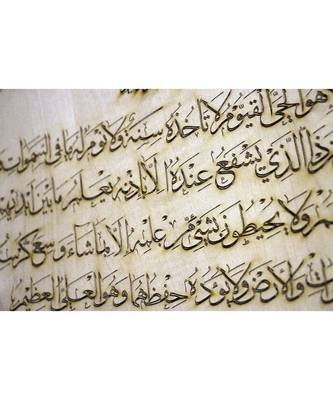 هو الحي القيوم لا تأخذه سنة ولا نوم له ما في السموات
ذا الذي يشفع عنده إلا بإذنه يعلم ما بين أيديهم
ولا يحيطون بشيء من علمه إلا بما شاء وسع كرسيه
والأرض ولا يؤده حفظهما وهو العلي العظيم